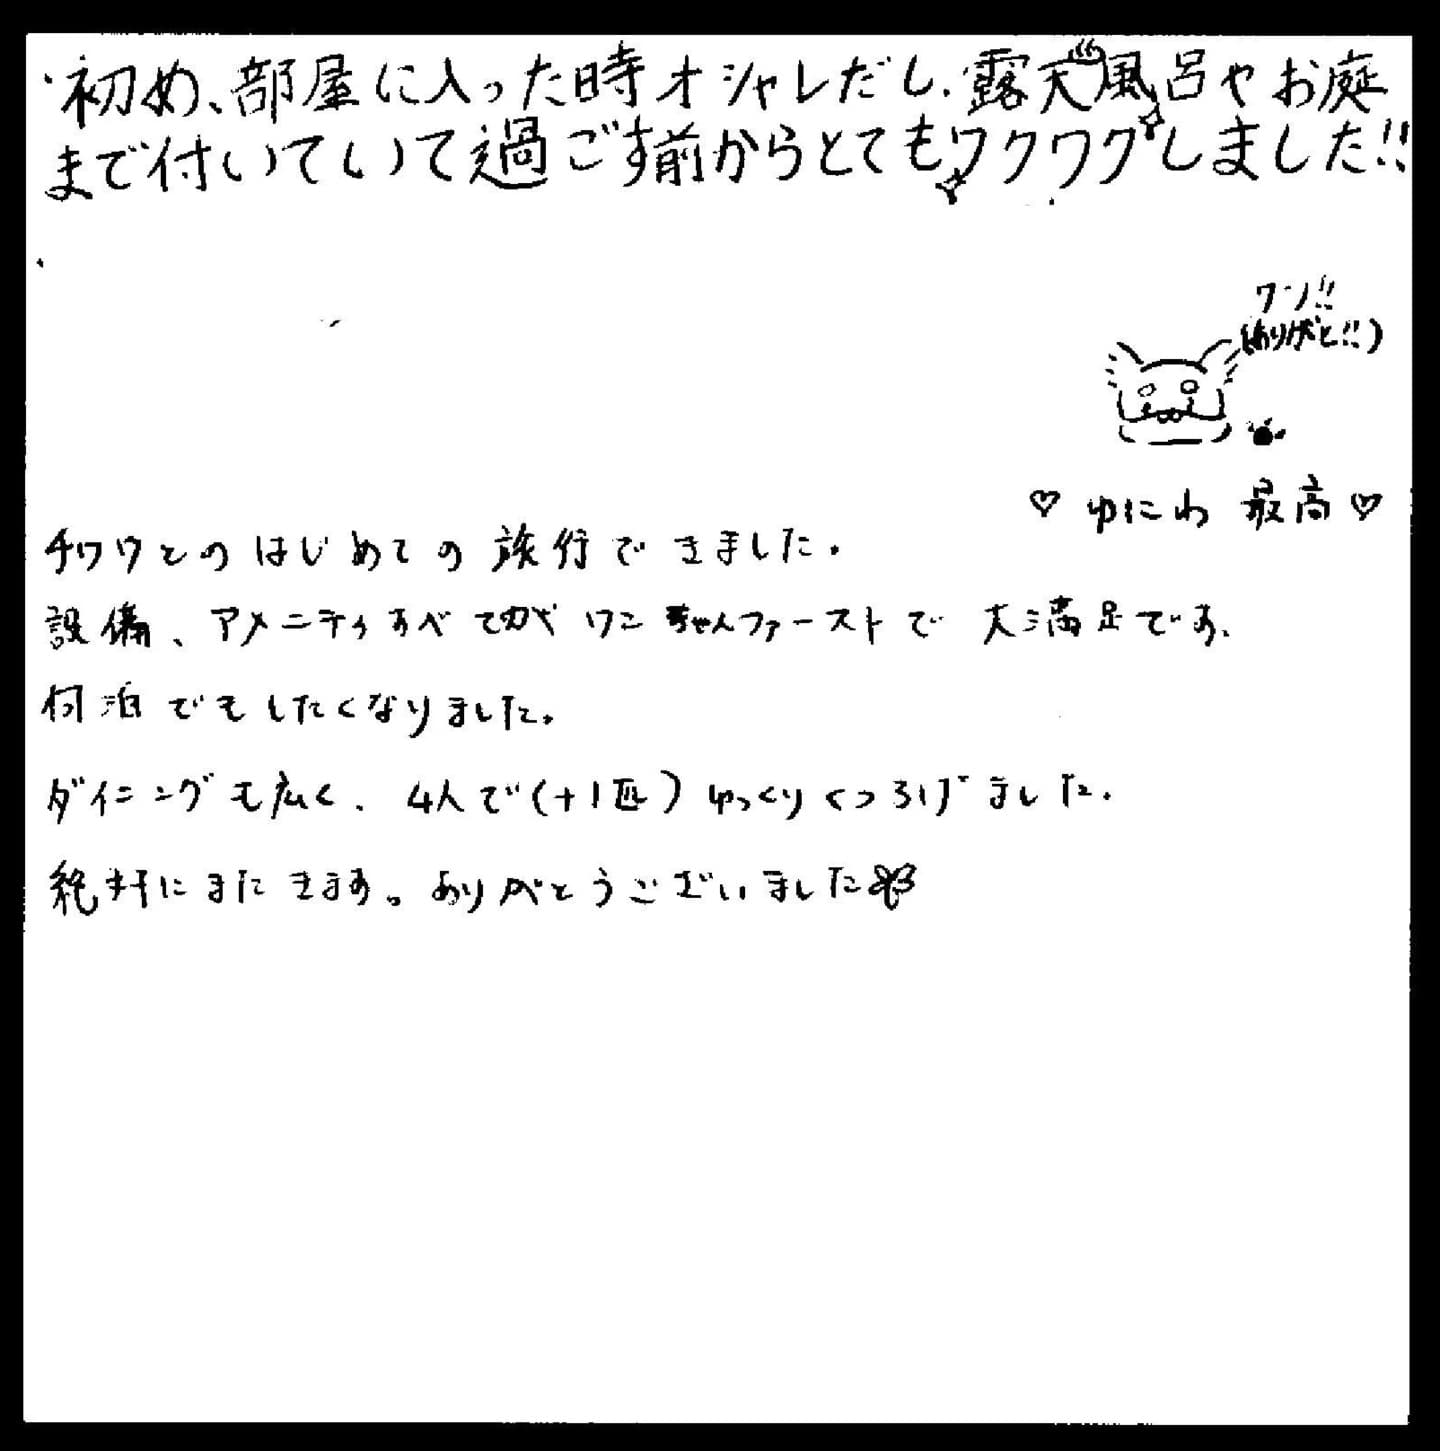 ・初め、部屋に入った時オシャレだし、露天風呂やお庭
まで付いていて過ごす前からとてもワクワクしました!!
ワン!!
(ありがと!!)
♡ ゆにわ 最高 ♡
チワワとのはじめての旅行できました。
設備、アメニティすべてがワンちゃんファーストで大満足です。
何泊でもしたくなりました。
ダイニングも広く、4人で(+1匹)ゆっくりくつろげました。
絶対にまたきます。ありがとうございました